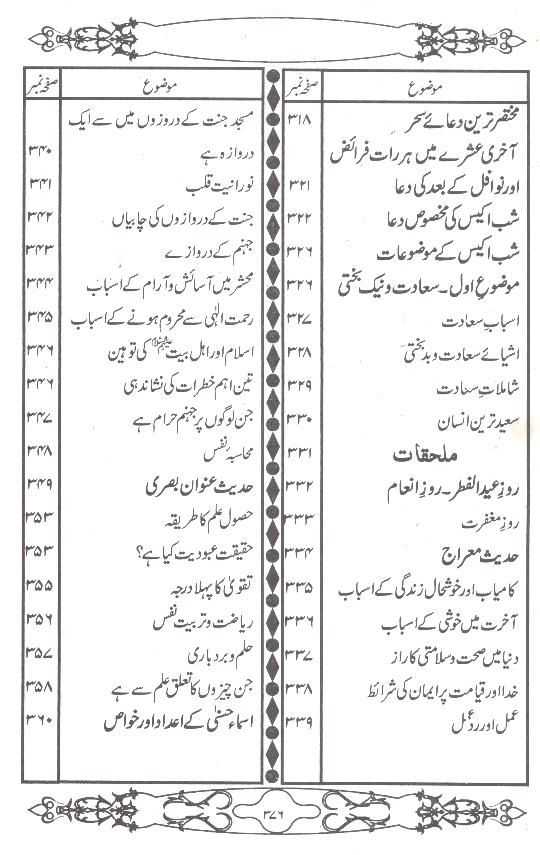 موضوع صفحہ نمبر
مختصر ترین دعائے سحر ۳۱۸
آخری عشرے میں ہر رات فرائض
اور نوافل کے بعد کی دعا ۳۲۱
شب اکیس کی مخصوص دعا ۳۲۲
شب اکیس کے موضوعات ۳۲۶
موضوع اول۔سعادت و نیک بختی ۳۲۶
اسباب سعادت ۳۲۷
اشیائے سعادت و بدبختی ۳۲۸
شاملاتِ سعادت ۳۲۹
سعید ترین انسان ۳۳۰
ملحقات ۳۳۱
روزِ عید الفطر۔روزِ انعام ۳۳۲
روزِ مغفرت ۳۳۳
حدیث معراج ۳۳۴
کامیاب اور خوشحال زندگی کے اسباب ۳۳۵
آخرت میں خوشی کے اسباب ۳۳۶
دنیا میں صحت و سلامتی کا راز ۳۳۷
خدا اور قیامت پر ایمان کی شرائط ۳۳۸
عمل اور ردِّ عمل ۳۳۹
موضوع صفحہ نمبر
مسجد جنت کے دروزوں میں سے ایک
دروازہ ہے ۳۴۰
نورانیت قلب ۳۴۱
جنت کے دروازوں کی چابیاں ۳۴۲
جہنم کے دروازے ۳۴۳
محشر میں آسائش و آرام کے اسباب ۳۴۴
رحمت الٰہی سے محروم ہونے کے اسباب ۳۴۵
اسلام اور اہل بیت کی توہین ۳۴۶
تین اہم خطرات کی نشاندہی ۳۴۶
جن لوگوں پر جہنم حرام ہے ۳۴۷
محاسبہ نفس ۳۴۸
حدیث عنوان بصری ۳۴۹
حصول علم کا طریقہ ۳۵۳
حقیقت عبودیت کیا ہے؟ ۳۵۳
تقویٰ کا پہلا درجہ ۳۵۵
ریاضت و تربیت نفس ۳۵۶
حلم و بردباری ۳۵۷
جن چیزوں کا تعلق علم سے ہے ۳۵۸
اسماء حسنیٰ کے اعداد اور خواص ۳۶۰
۳۷۶